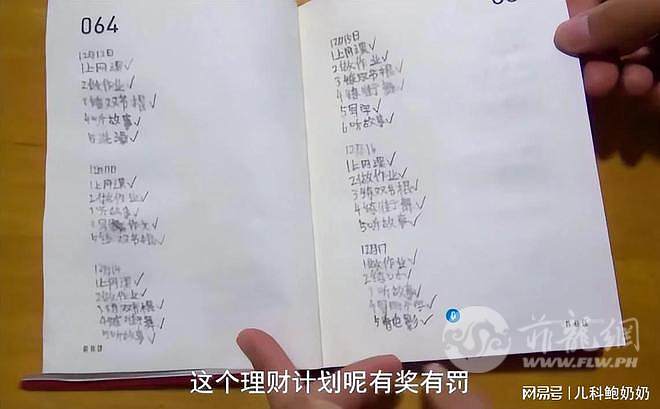 064
12月12日
1上网课✓
2做作业✓
3练双节棍✓
4听故事✓
5洗澡✓
1上网课✓
2做作业✓
5练双节棍✓
1上网课✓
2做作业✓
3练双节棍✓
5听故事✓
12月15日
1上网课✓
2做作业✓
3练双节棍✓
4练街舞✓
5自学✓
6听故事✓
12月16
1上网课✓
2做作业✓
3练双节棍✓
4练街舞✓
5听故事✓
12月17
1做作业✓
听故事✓
5看电影✓
这个理财计划呢有奖有罚
菲龍網
WWW.FLW.PH
网易号 | 儿科鲍奶奶